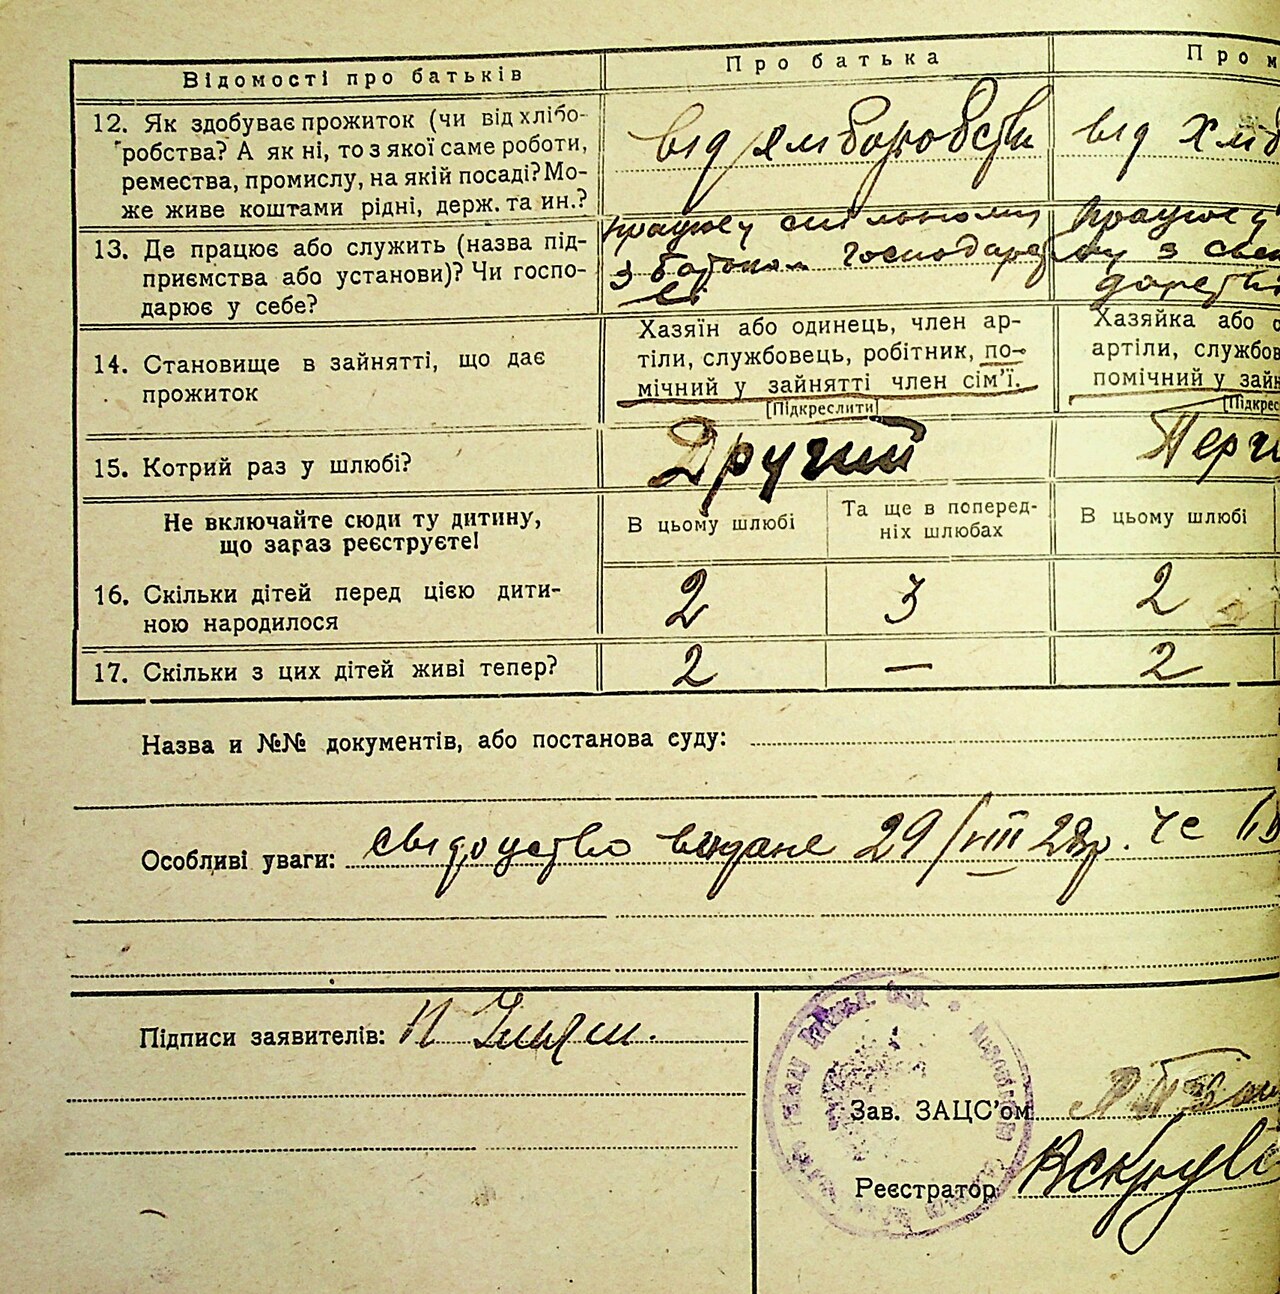 Відомості про батьків
Про батька
Про м
12. Як здобуває прожиток (чи від хлібо-
робства? А як ні, то з якої саме роботи,
ремества, промислу, на якій посаді? Мо-
же живе коштами рідні, держ. та ин.?
від хліборобств
від хліб
13. Де працює або служить (назва під-
приємства або установи)? Чи госпо-
дарює у себе?
працює у спільному
з батьком господарс
ві
працює у
му з сво
дарстві
14. Становище в зайнятті, що дає
прожиток
Хазяїн або одинець, член ар-
тіли, службовець, робітник, по-
мічний у зайнятті член сім’ї.
[Підкреслити]
Хазяйка або о
артіли, службов
помічний у зайн
[Підкрес
15. Котрий раз у шлюбі?
Другий
Перш
Не включайте сюди ту дитину,
що зараз реєструєте!
В цьому шлюбі
Та ще в поперед-
ніх шлюбах
В цьому шлюбі
16. Скільки дітей перед цією дити-
ною народилося
2
3
2
17. Скільки з цих дітей живі тепер?
2
—
2
Назва и №№ документів, або постанова суду:
Особливі уваги: свідоцтво видане 29/VIII 28р. че
Підписи заявителів:
Зав. ЗАЦС’ом
Реєстратор